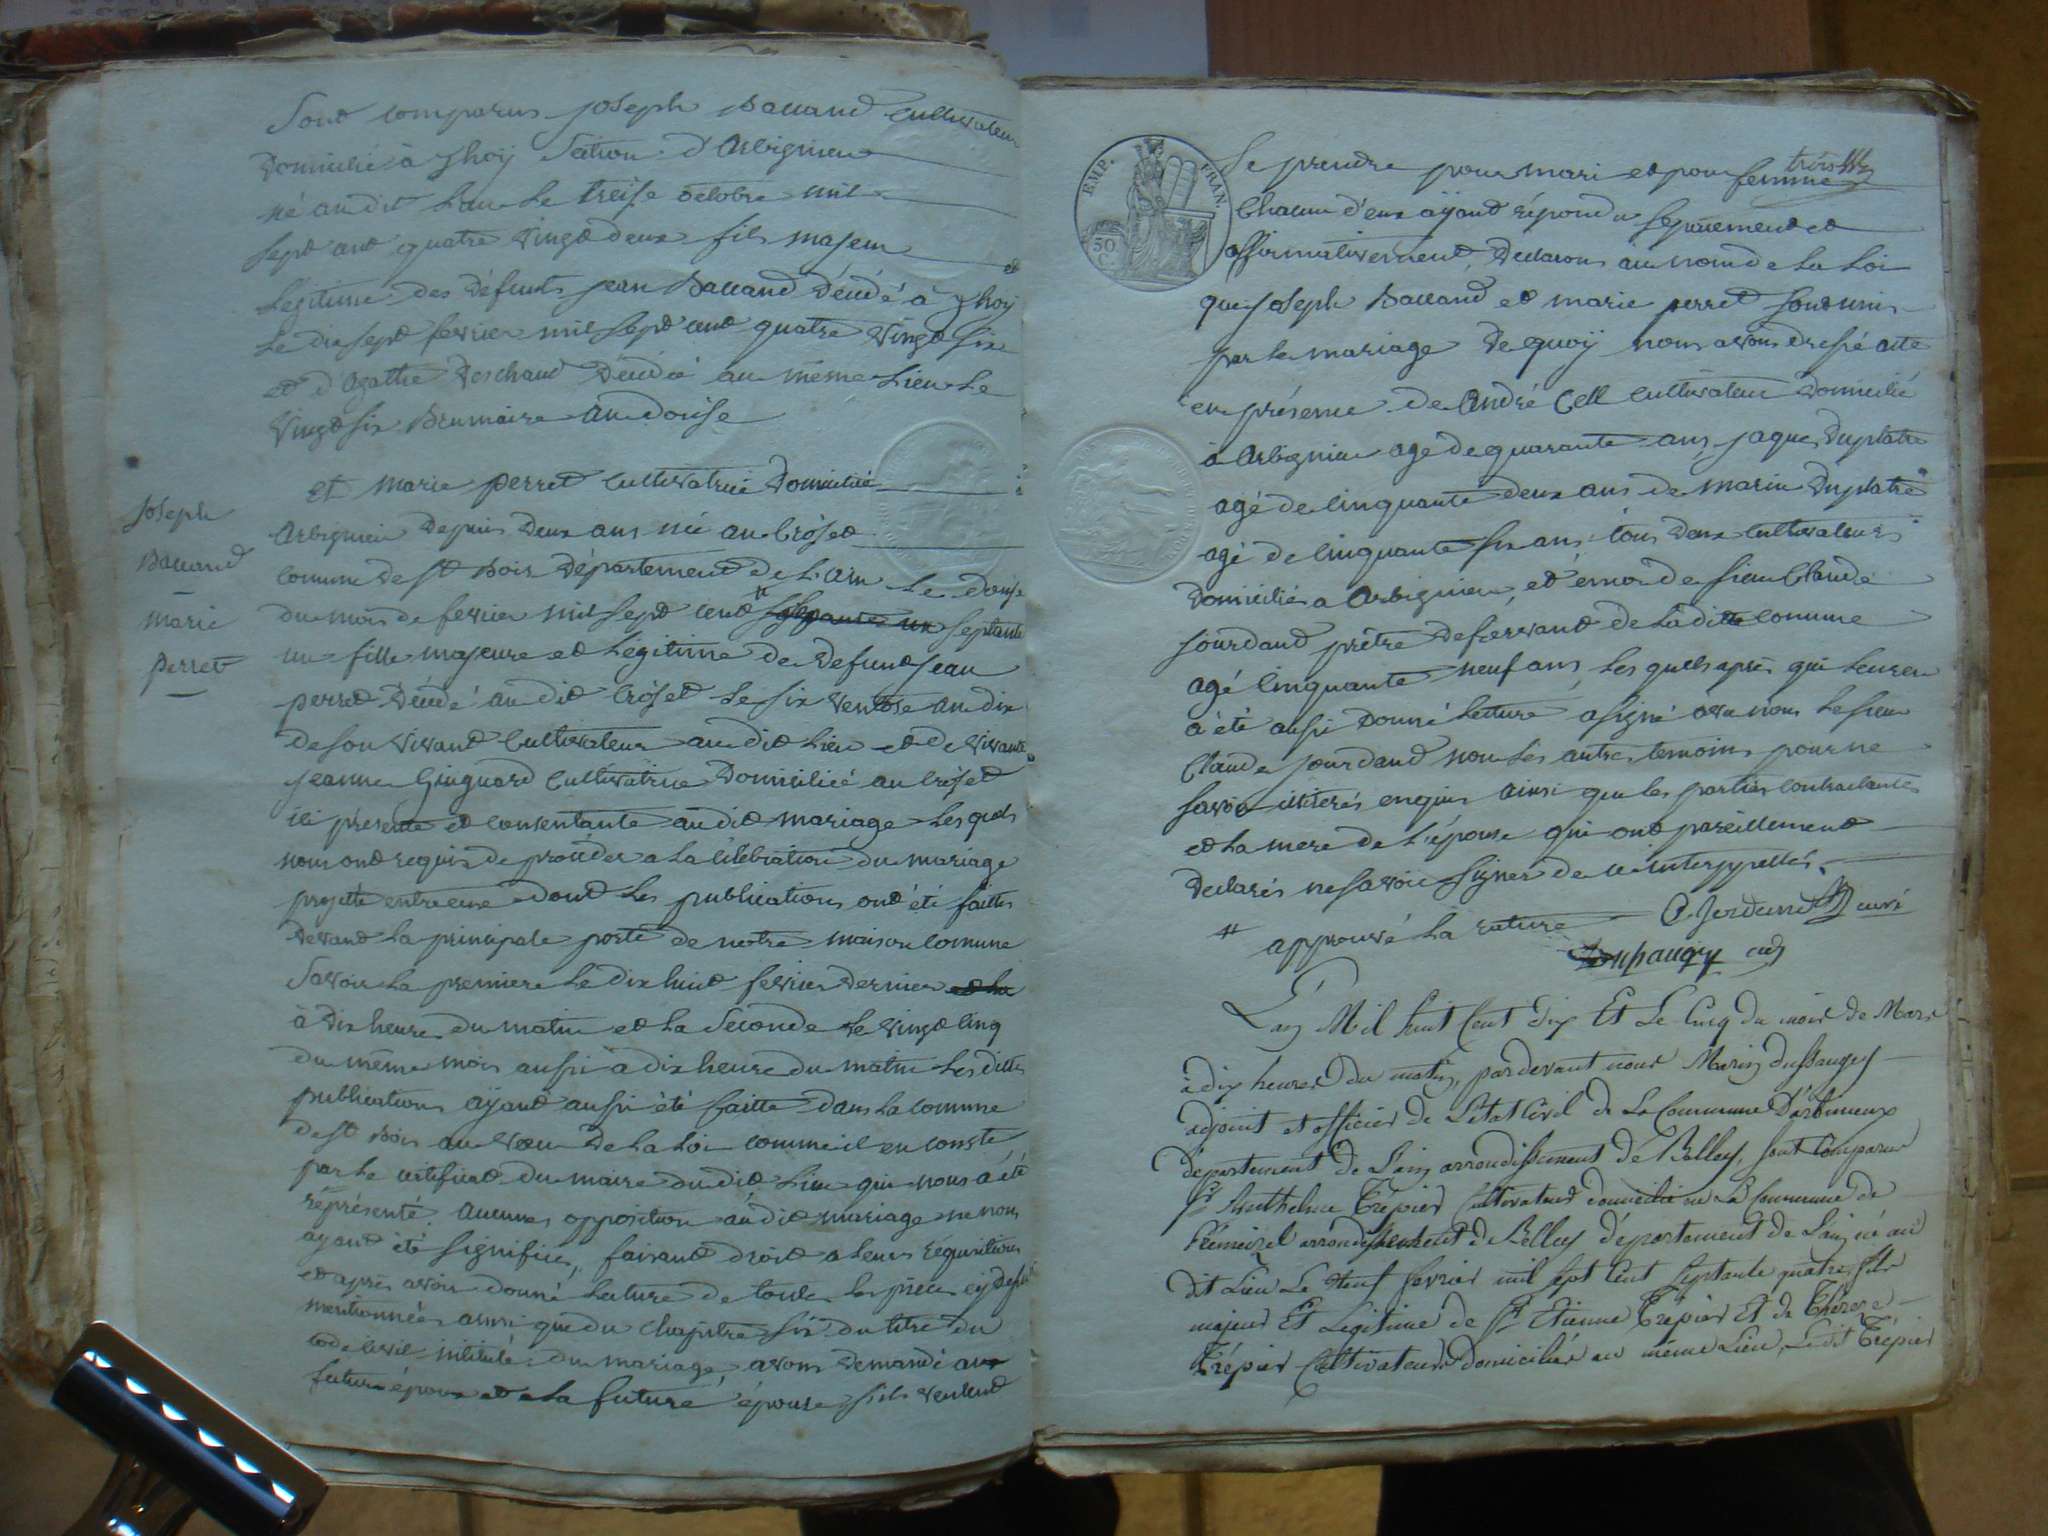 Sont comparus joseph Baccand Cultivateur
Domicilié à yhoij Section d'Arbignieu
né au dit Lieu Le treise octobre mil
sept cent quatre vingt deux fils majeur
et
Légitime des défunts jean Baccand Décédé à yhoij
Le dix sept fevrier mil sept cent quatre vingt six
et d'Agathe Deschand Décédée au même Lieu Le
vingt six Brumaire an douise
joseph
Baccand
marie
perret
et marie perret Cultivatrice Domiciliée
Arbignieu Depuis Deux ans née au Crôset
comune de st Bois Département de L'ain Le douse
du mois de fevrier mil sept cent septante
un fille majeure et Légitime de Defunt jean
perret Décédé au dit Crôset Le six ventose an dix
de son vivant Cultivateur au dit Lieu et de vivante
jeanne Ginguard Cultivatrice Domiciliée au Crôset
ici présente et consentante au dit mariage Lesquels
nous ont requis de procéder a La célébration du mariage
projetté entre eux dont Les publications ont été faittes
devant La principale porte de notre maison Comune
Savoir La premiere Le dix huit fevrier dernier et La
à dix heures du matin et La Seconde Le vingt Cinq
du même mois aussi à dix heure du matin Les dittes
publications ayant aussi été faitte dans La comune
de st Bois au vœu De La Loi comme il en conste
par Le certificat du maire du dit Lieu qui nous a été
réprésenté Aucunes opposition au dit mariage ne nous
ayant été signifiée, faisant droit a Leurs réquisitions
et après avoir donné Lecture de toutes Les pièces cy dessus
mentionnées ainsi que du Chapitre six du titre du
code Civil intitulé du mariage, avons demandé au
futur époux et a La future épouse s'ils veulent
EMP. FRAN.
50 C.
Se prendre pour mari et pour femme
Chacun d'eux ayant répondu séparément et
affirmativement, Declarons au nom de La Loi
que joseph Baccand et marie perret sont unis
par Le mariage De quoij nous avons dressé acte
en présence de André Cett Cultivateur Domicilié
à Arbignieu agé de quarante ans, jaques Duplatre
agé de Cinquante deux ans de marin Duplatre
agé de Cinquante six ans tous Deux Cultivateurs
Domiciliés a Arbignieu, et encor de sieur Claude
jourdand prêtre desservant de La ditte comune
agé Cinquante neuf ans Les quels après qui Leur en
a été aussi Donné Lecture a signé avec nous Le sieur
Claude jourdand non Les autres temoins pour ne
savoir ittiterés enquis ainsi que Les parties contractantes
et La mere de L'épouse qui ont pareillement
declarés ne savoir signer de ce interppellés.
# approuvé La rature C. Jordand
Dussaugey adj
L'an Mil huit Cent dix Et Le Cinq du mois de Mars
à dix heures du matin, pardevant nous Marin dussaugey
adjoint et officier de L'état Civil de La Commune D'arbinieux
département de L'ain arrondissement de Belley, sont Comparu
sr Anthelme Trépier Cultivateur domicilié en La Commune de
Prémeizel arrondissement de Belley département de L'ain né au
dit Lieu Le Neuf fevrier mil sept Cent septante quatre, fils
majeur Et Légitime de sr Etienne Trépier Et de Thérese
Trépier Cultivateurs domiciliés au même Lieu, Ledit Trépier